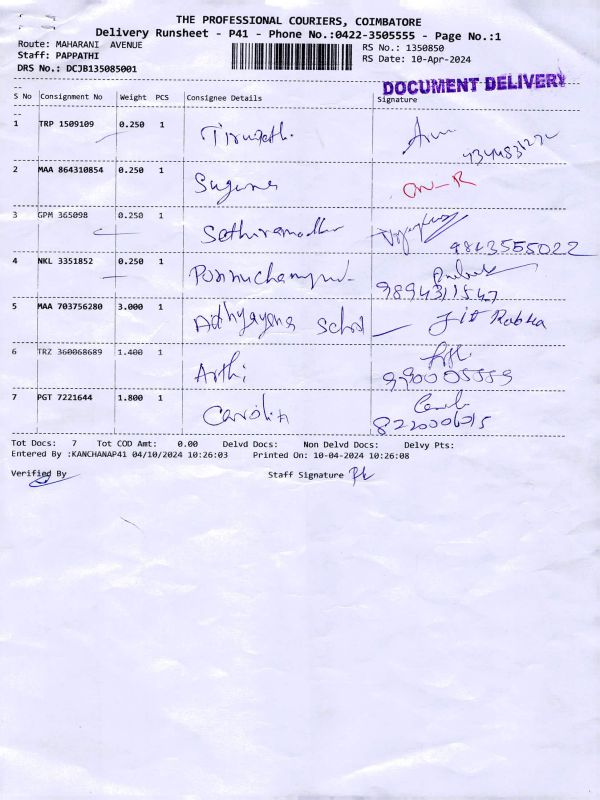 THE PROFESSIONAL COURIERS, COIMBATORE
Delivery Runsheet - P41 - Phone No.:0422-3505555 - Page No.:1
Route: MAHARANI AVENUE
RS No.: 1350850
Staff: PAPPATHI
RS Date: 10-Apr-2024
DRS No.: DCJB135085001
DOCUMENT DELIVERY
S No Consignment No Weight PCS Consignee Details Signature
1 TRP 1509109 0.250 1
2 MAA 864310854 0.250 1 Suguna
3 GPM 365098 0.250 1
9843555022
4 NKL 3351852 0.250 1
9894311547
5 MAA 703756280 3.000 1 Adhyayana School
6 TRZ 360068689 1.400 1 Arthi
7 PGT 7221644 1.800 1 Carolin
Tot Docs: 7 Tot COD Amt: 0.00 Delvd Docs: Non Delvd Docs: Delvy Pts:
Entered By :KANCHANAP41 04/10/2024 10:26:03 Printed On: 10-04-2024 10:26:08
Verified By Staff Signature